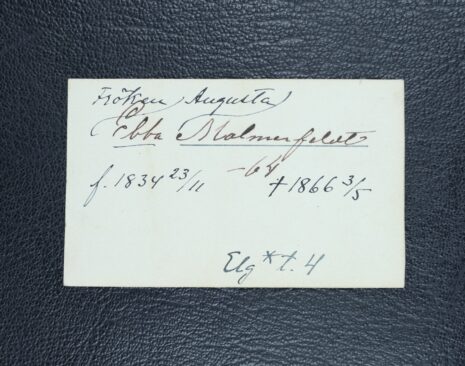 Fröken Augusta
Ebba Malmerfeldt
-64
f. 1834 23/11 †1866 3/5
Elg * t. 4